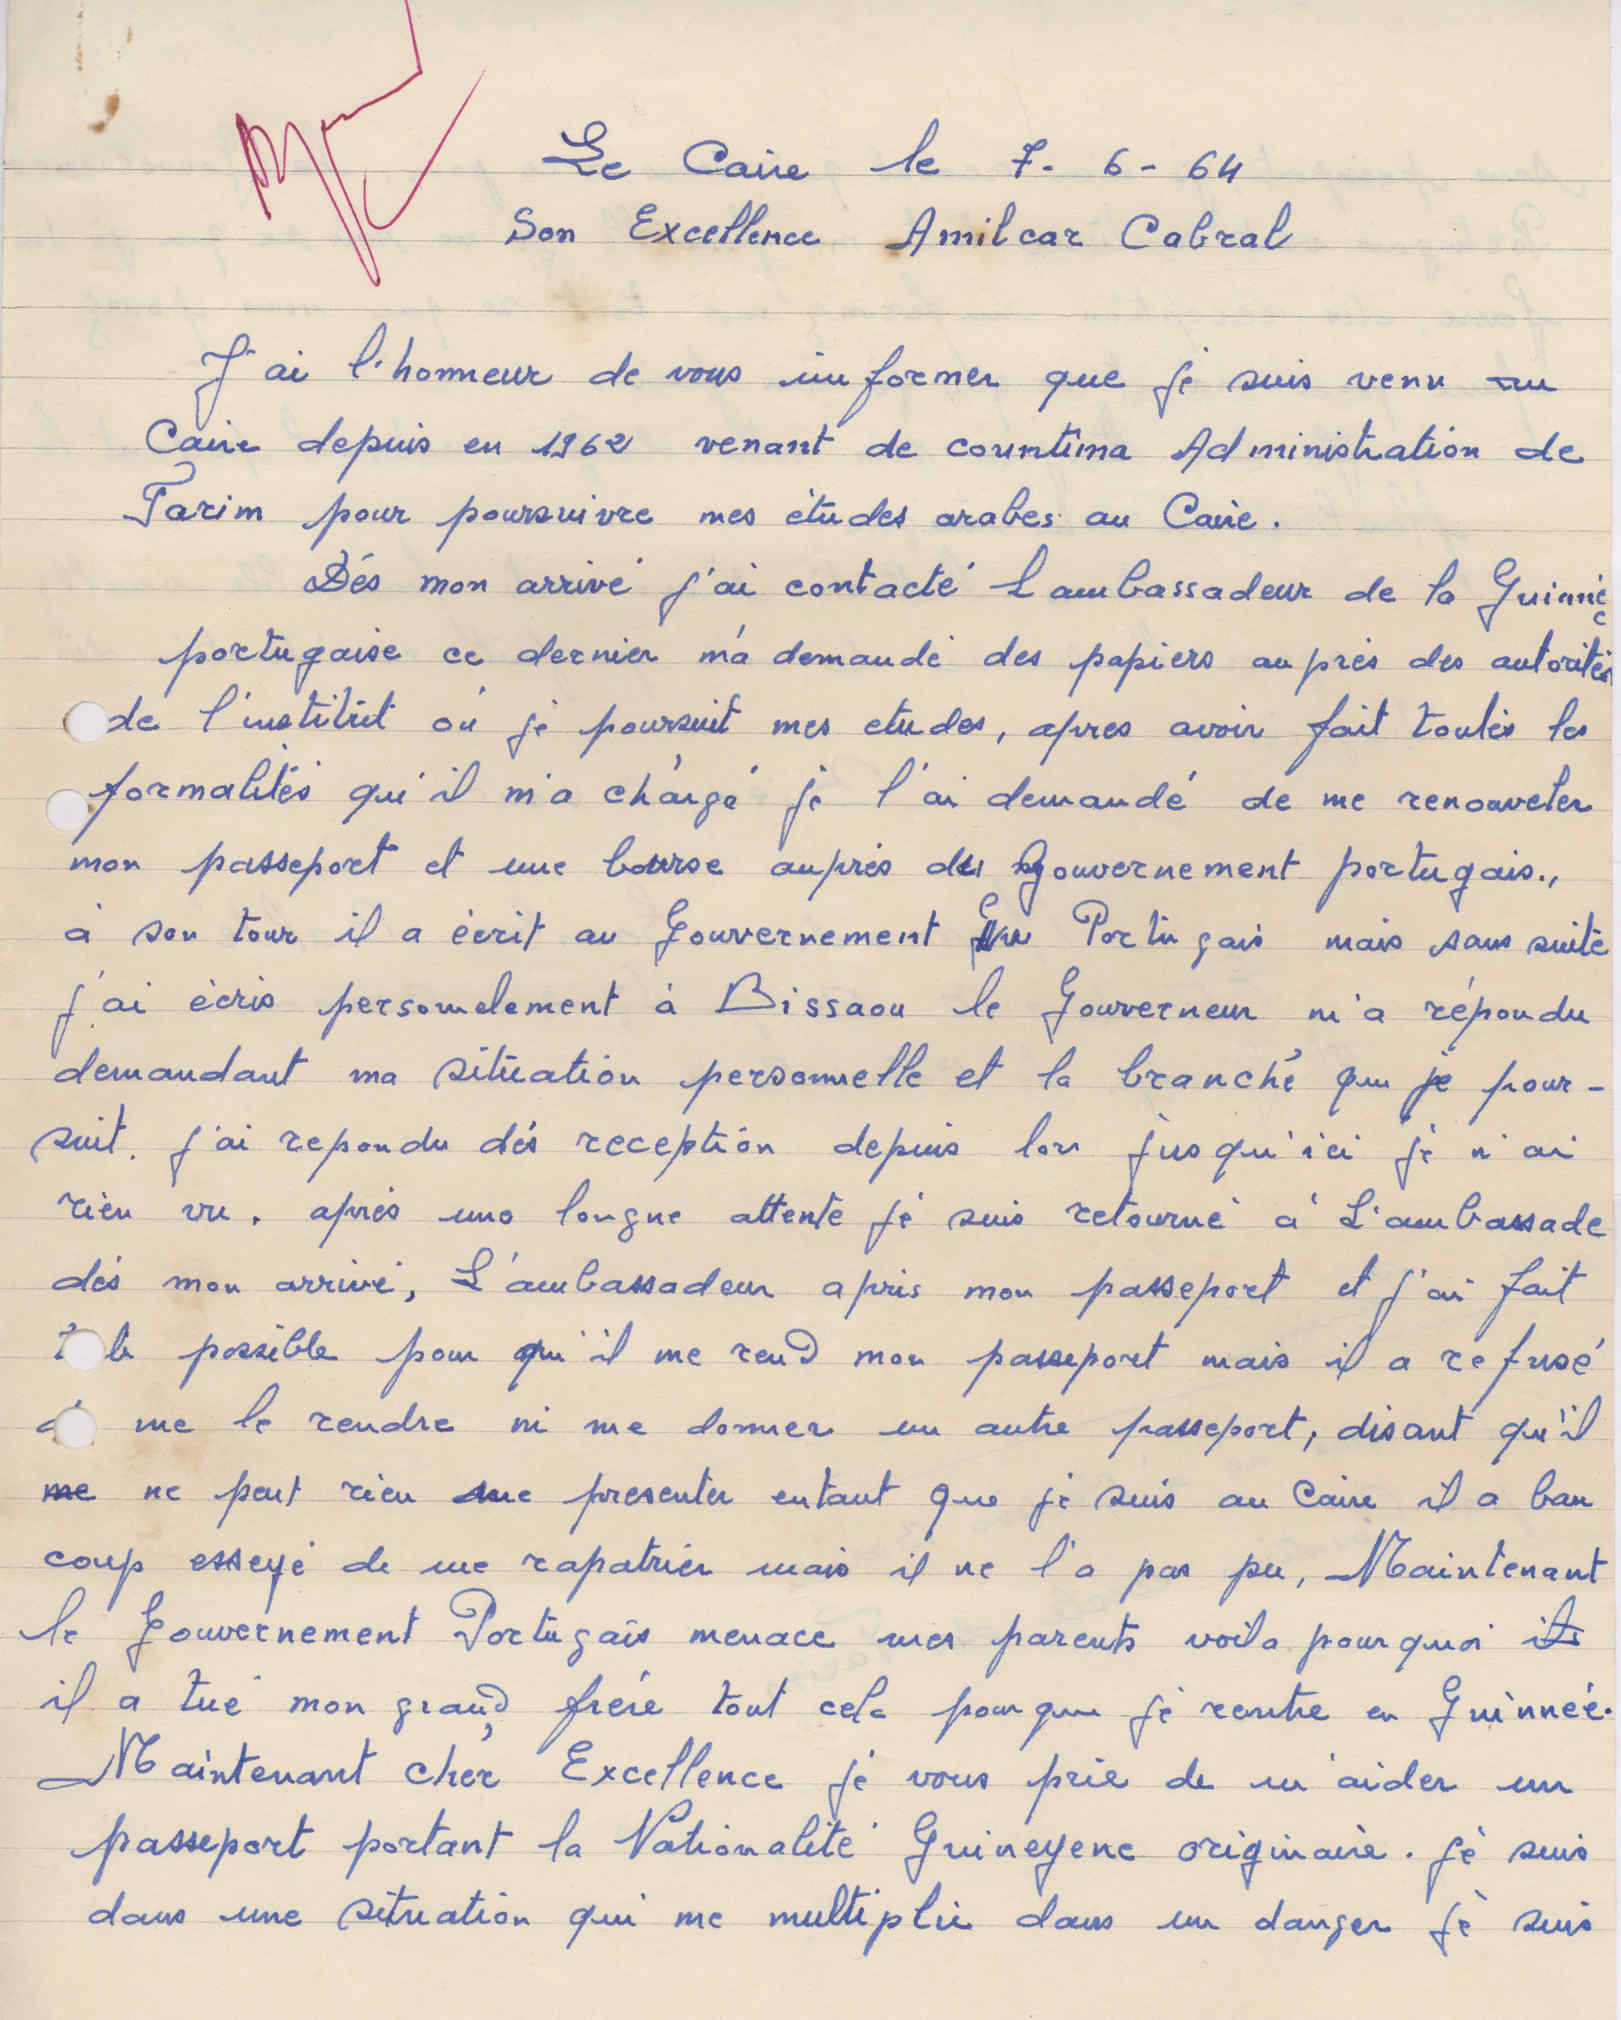 Le Caire le 7-6-64
Son Excellence Amilcar Cabral
J'ai l'honneur de vous informer que je suis venu au
Caire depuis en 1962 venant de countima Administration de
Farim pour poursuivre mes études arabes au Caire.
Dés mon arrivé j'ai contacté L'ambassadeur de la Guinné
portugaise ce dernier m'a demandé des papiers auprés des autorités
de l'institut ou je poursuit mes etudes, apres avoir fait toutes les
formalités qu'il m'a chargé je l'ai demandé de me renouveler
mon passeport et une bourse auprés du gouvernement portugais.,
à son tour il a écrit au Gouvernement Portugais mais sans suite
j'ai écris personnelement à Bissaou le Gouverneur m'a répondu
demandant ma situation personnelle et la branche que je pour-
suit. j'ai repondu dés reception depuis lors jusqu'ici je n'ai
rien vu. aprés une longue attente je suis retourné à L'ambassade
dés mon arrivé, L'ambassadeur a pris mon passeport et j'ai fait
le possible pour qu'il me rend mon passeport mais il a refusé
me le rendre ni me donner un autre passeport, disant qu'il
me ne peut rien me presenter entant que je suis au Caire il a bau
coup esseyé de me rapatrier mais il ne l'a pas pu, Maintenant
le Gouvernement Portugais menace mes parents voila pourquoi il
il a tué mon grand frére tout cela pour que je rentre en Guinnée.
Maintenant cher Excellence je vous prie de m'aider un
passeport portant la Nationalité Guineyene originaire. je suis
dans une situation qui me multiplie dans un danger je suis